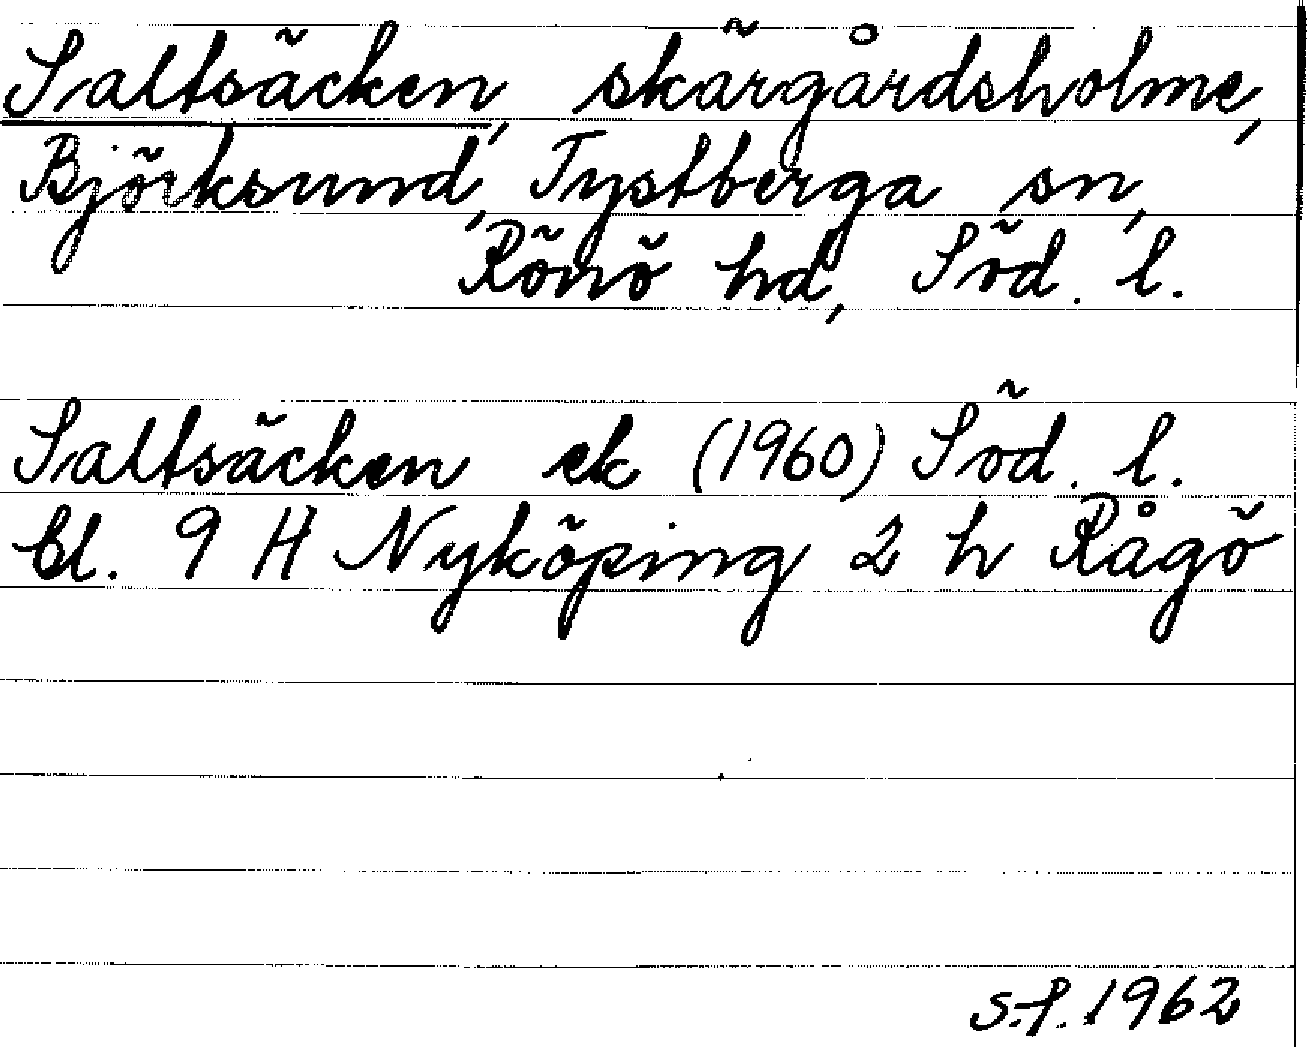 Saltsäcken, skärgårdsholme,
Björksund, Tystberga sn,
Rönö hd, Söd. l.
Saltsäcken ek (1960) Söd. l.
bl. 9 H Nyköping 2 h Rågö
S.f. 1962